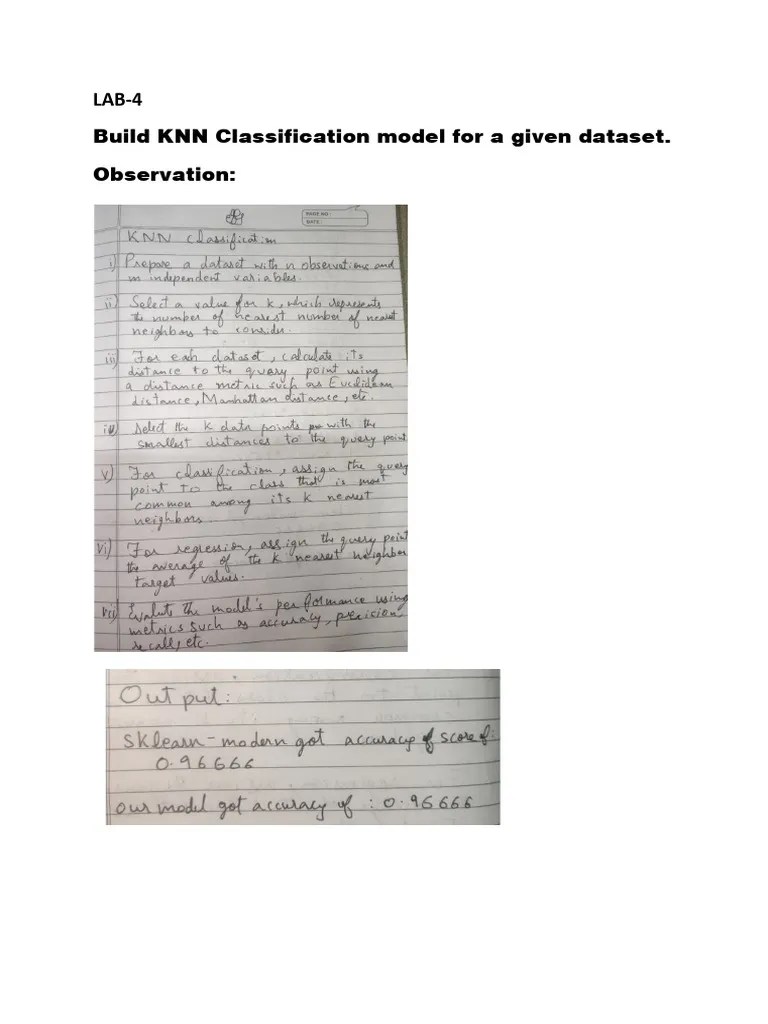 LAB-4
Build KNN Classification model for a given dataset.
Observation:
PAGE NO :
DATE :
KNN Classification
i) Prepare a dataset with n observations and
m independent variables.
ii) Select a value for k, which represents
the number of nearest number of nearest
neighbors to consider.
iii) For each dataset, calculate its
distance to the query point using
a distance metric such as Euclidean
distance, Manhattan distance, etc.
iv) Select the K data points with the
smallest distances to the query point
v) For classification, assign the query
point to the class that is most
common among its k nearest
neighbors
vi) For regression, assign the query point
the average of the k nearest neighbor
target values.
vii) Evalute the model's performance using
metrics such as accuracy, precision,
recall, etc.
Output:
Sklearn-modern got accuracy of score of:
0.96666
our model got accuracy of : 0.96666